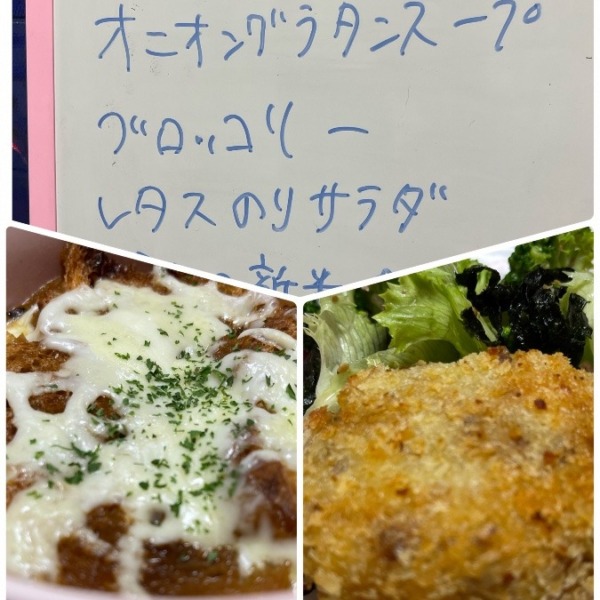 オニオングラタンスープ
ブロッコリー
レタスのりサラダ
新米